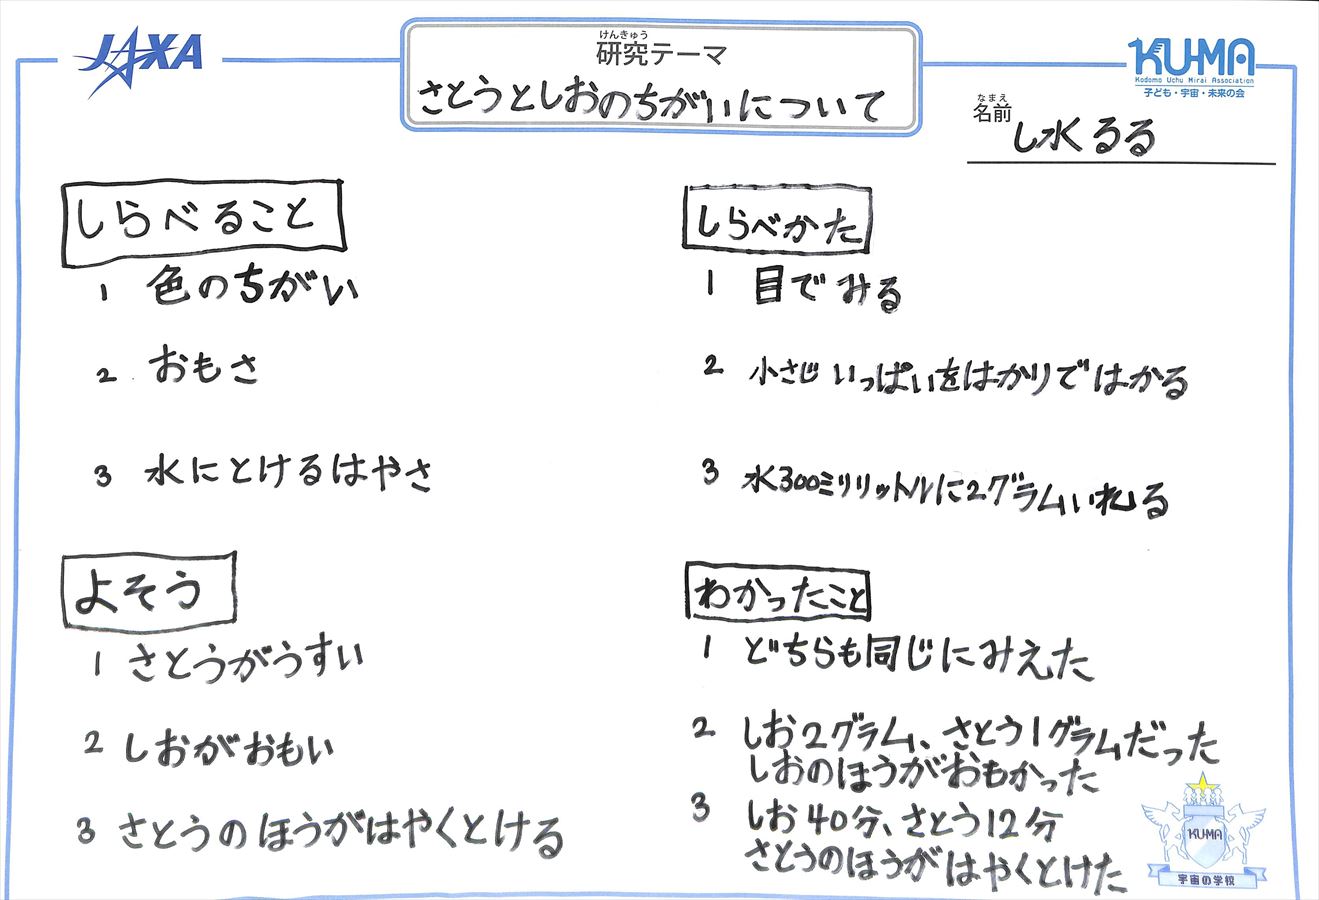 JAXA
けんきゅう
研究テーマ
さとうとしおのちがいについて
KUMA
Kodomo Uchu Mirai Association
子ども・宇宙・未来の会
なまえ
名前
し水るる
しらべること
1 色のちがい
2 おもさ
3 水にとけるはやさ
よそう
1 さとうがうすい
2 しおがおもい
3 さとうのほうがはやくとける
しらべかた
1 目でみる
2 小さじいっぱいをはかりではかる
3 水300ミリリットルに2グラムいれる
わかったこと
1 どちらも同じにみえた
2 しお2グラム、さとう1グラムだった
しおのほうがおもかった
3 しお40分、さとう12分
さとうのほうがはやくとけた
KUMA
宇宙の学校